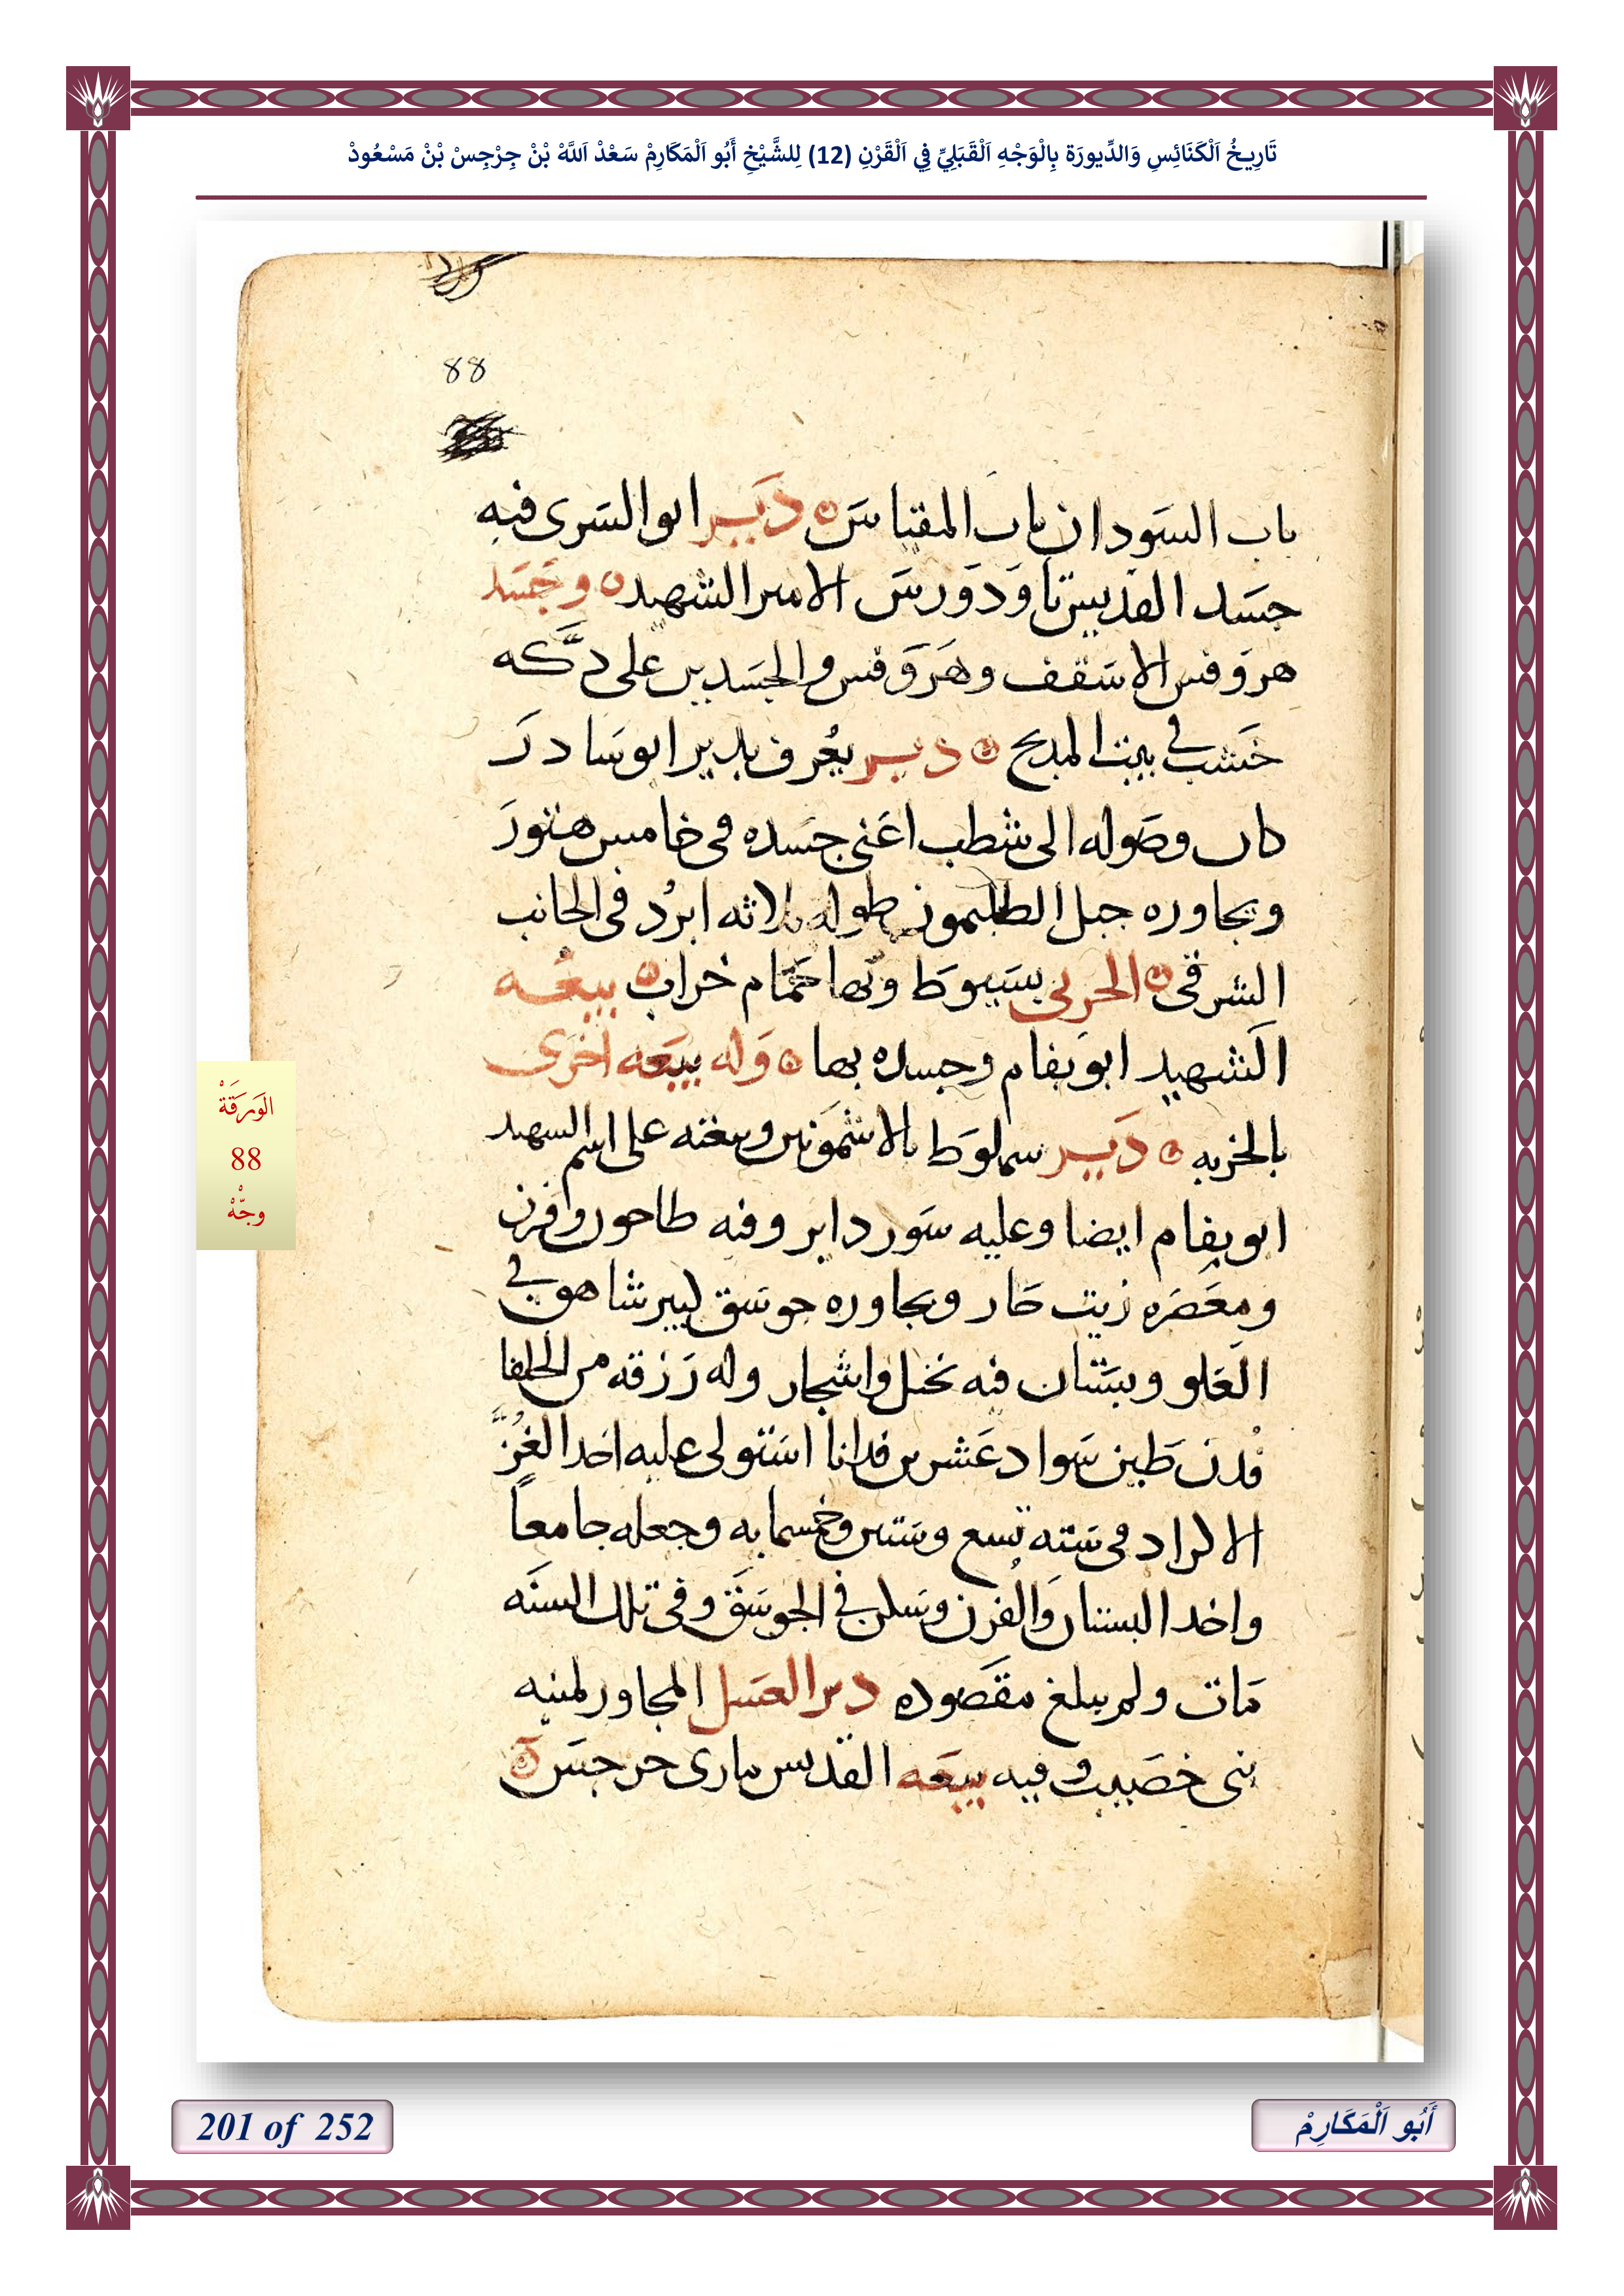 تَارِيخُ اَلْكَنَائِسِ وَالدِّيورَة بِالْوَجْهِ اَلْقَبَلِيِّ فِي اَلْقَرْنِ (12) لِلشَّيْخِ أَبُو اَلْمَكَارِمْ سَعْدْ اَللَّهْ بْنْ جِرْجِسْ بْنْ مَسْعُودْ
88
باب السَودان باب المقياسَ دَير ابو السَرى فيه
جسَد القديس تاوَدوَرسَ الامير الشهيد وجَسَد
هروَفس الاسَقف وهَروَفس والجسَدين على دكَّه
خشب في بيت المدبح دير يعُرف بدير ابو سَادرَ
كان وصَوله الى شطب اعَنى جسَده فى خامس هتورَ
ويجاوره جبل الطليمون طوله ثلاثه ابرُد فى الجانب
الشرقى الحربى بسَيوَط وبها حمَّام خراب بيعُه
الشهيد ابو بفام وجسده بها وَله بيعَه اخرَى
بالخربه دَير سملوَط بالاشموَنين وبيعته على اسم السهيد
ابو بفام ايضا وعليه سَور داير وفيه طاحون وافرن
ومعَصَره زيت حَار ويجاوره جوسَق كبير شاهق في
العَلو وبسَتان فيه نخل واشجار وله رَزقه من الخلفا
فدن طَين سَواد عَشرين فدانا استولى عليه احَد الغُزّ
الاكراد فى سَنه تسع وسَتين وخمسمايه وجعله جامعاً
واخد البستان وَالفرن وسَكن في الجوسَق وفى تلك السنَه
مَات ولم يبلغ مقَصوده دير العسَل المجاور لمنيه
بنى خصَيب وفيه بيعَه القديس مارى جرجسَ
الوَرَقَةْ
88
وجّهْ
201 of 252
أَبُو اَلْمَكَارِمْ